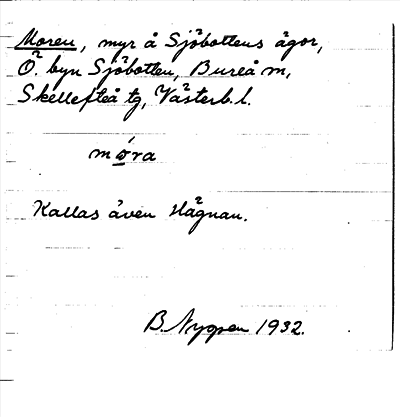 Moren, myr å Sjöbottens ägor,
Ö. byn Sjöbotten, Bureå m,
Skellefteå tg, Västerb. l.
móra
Kallas även Hägnan.
B. Nygren 1932.